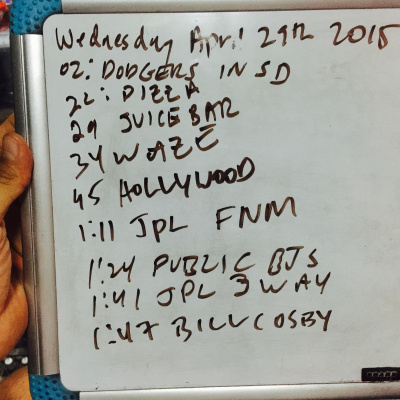 Wednesday April 29th 2015
02: DODGERS IN SD
22: PIZZA
29 JUICE BAR
34 WAZE
45 HOLLYWOOD
1:11 JPL FNM
1:24 PUBLIC BJS
1:41 JPL 3 WAY
1:47 BILL COSBY